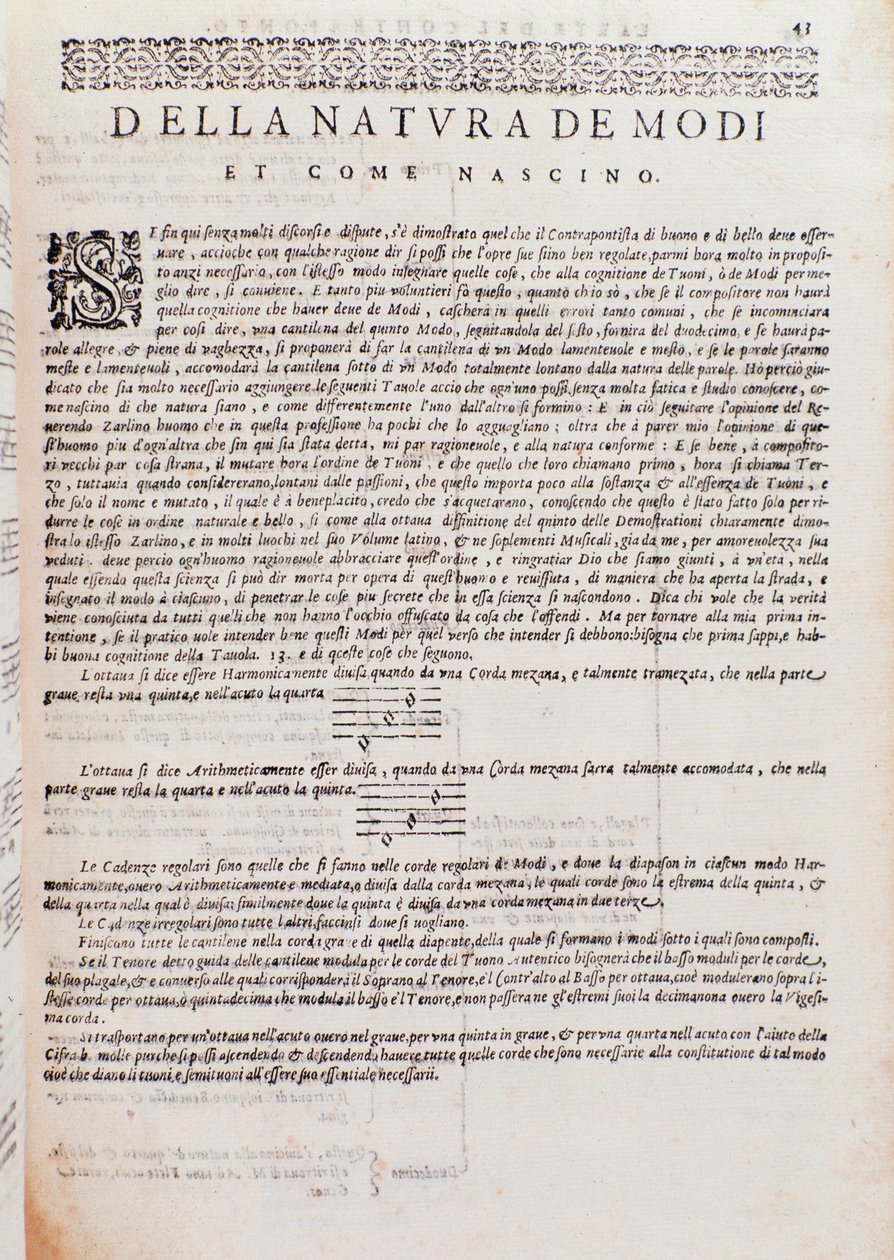 43
DELLA NATVRA DE MODI
ET COME NASCINO.
SE fin qui senza molti discorsi e dispute, s'è dimostrato quel che il Contrapontista di buono e di bello deue osser-
uare, accioche con qualche ragione dir si possi che l'opre sue siino ben regolate, parmi hora molto in proposi-
to anzi necessario, con l'istesso modo insegnare quelle cose, che alla cognitione de Tuoni, ò de Modi per me-
glio dire, si conuiene. E tanto piu voluntieri fò questo, quanto ch io sò, che se il compositore non haurà
quella cognitione che hauer deue de Modi, cascherà in quelli errori tanto comuni, che se incominciara
per cosi dire, vna cantilena del quinto Modo, seguitandola del sesto, fornira del duodecimo, e se haurà pa-
role allegre, & piene di vaghezza, si proponerà di far la cantilena di vn Modo lamenteuole e mesto, e se le parole saranno
meste e lamenteuoli, accomodarà la cantilena sotto di vn Modo totalmente lontano dalla natura delle parole. Hò perciò giu-
dicato che sia molto necessario aggiungere le seguenti Tauole accio che ogn'uno possi senza molta fatica e studio conoscere, co-
me nascino di che natura siano, e come differentemente l'uno dall'altro si formino: E in ciò seguitare l'opinione del Re-
uerendo Zarlino huomo che in questa professione ha pochi che lo agguagliano; oltra che à parer mio l'opinione di que-
st'huomo piu d'ogn'altra che fin qui sia stata detta, mi par ragioneuole, e alla natura conforme: E se bene, à compositо-
ri vecchi par cosa strana, il mutare hora l'ordine de Tuoni, e che quello che loro chiamano primo, hora si chiama Ter-
zo, tuttauia quando considererano, lontani dalle passioni, che questo importa poco alla sostanza & all'essenza de Tuoni, e
che solo il nome e mutato, il quale è à beneplacito, credo che s'acquetarano, conoscendo che questo è stato fatto solo per ri-
durre le cose in ordine naturale e bello, si come alla ottaua diffinitione del quinto delle Demostrationi chiaramente dimo-
stra lo istesso Zarlino, e in molti luochi nel suo Volume latino, & ne soplementi Musicali, gia da me, per amoreuolezza sua
veduti. deue percio ogn'huomo ragioneuole abbracciare quest'ordine, e ringratiar Dio che siamo giunti, à vn'età, nella
quale essendo questa scienza si può dir morta per opera di quest'huomo e reuissuta, di maniera che ha aperta la strada, e
insegnato il modo à ciascuno, di penetrar le cose piu secrete che in essa scienza si nascondono. Dica chi vole che la verità
viene conosciuta da tutti quelli che non hanno l'occhio offuscato da cosa che l'offendi. Ma per tornare alla mia prima in-
tentione, se il pratico uole intender bene questi Modi per quel verso che intender si debbono: bisogna che prima sappi, e hab-
bi buona cognitione della Tauola. 13. e di qceste cose che seguono.
L'ottaua si dice essere Harmonicanente diuisa quando da vna Corda mezana, e talmente tramezata, che nella parte
graue resta vna quinta, e nell'acuto la quarta
L'ottaua si dice Arithmeticamente esser diuisa, quando da vna Corda mezana sarra talmente accomodata, che nella
parte graue resta la quarta e nell'acuto la quinta.
Le Cadenze regolari sono quelle che si fanno nelle corde regolari de Modi, e doue la diapason in ciascun modo Har-
monicamente, ouero Arithmeticamente e mediata, o diuisa dalla corda mezana, le quali corde sono la estrema della quinta, &
della quarta nella qual è diuisa; similmente doue la quinta è diuisa da vna corda mezana in due terze.
Le Cadenze irregolari sono tutte l altri, faccinsi doue si uogliano.
Finiscano tutte le cantilene nella corda graue di quella diapente, della quale si formano i modi sotto i quali sono composti.
Se il Tenore detto guida delle cantilene modula per le corde del Tuono Autentico bisognerà che il basso moduli per le corde,
del suo plagale, & e conuerso alle quali corrisponderà il Soprano al Tenore, e'l Contr'alto al Basso per ottaua, cioè modulerano sopra l'i-
stesse corde per ottaua, ò quintadecima che modula il basso e'l Tenore, e non passera ne gl'estremi suoi la decimanona ouero la Vigesi-
ma corda.
Si trasportano per un'ottaua nell'acuto ouero nel graue, per vna quinta in graue, & per vna quarta nell acuto con l'aiuto della
Cifra b. molle purche si possi ascendendo & descendendo, hauere tutte quelle corde che sono necessarie alla constitutione di tal modo
cioè che diano li tuoni, e semituoni all'essere suo essentiale necessarii.